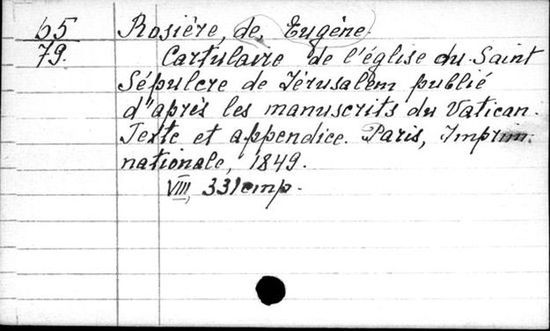 65 Rosière, de, Eugène.
79. Cartulaire de l'église du Saint
Sépulcre de Jérusalem publié
d'après les manuscrits du Vatican.
Texte et appendice. Paris, Imprim.
nationale, 1849.
VIII, 331 стр.